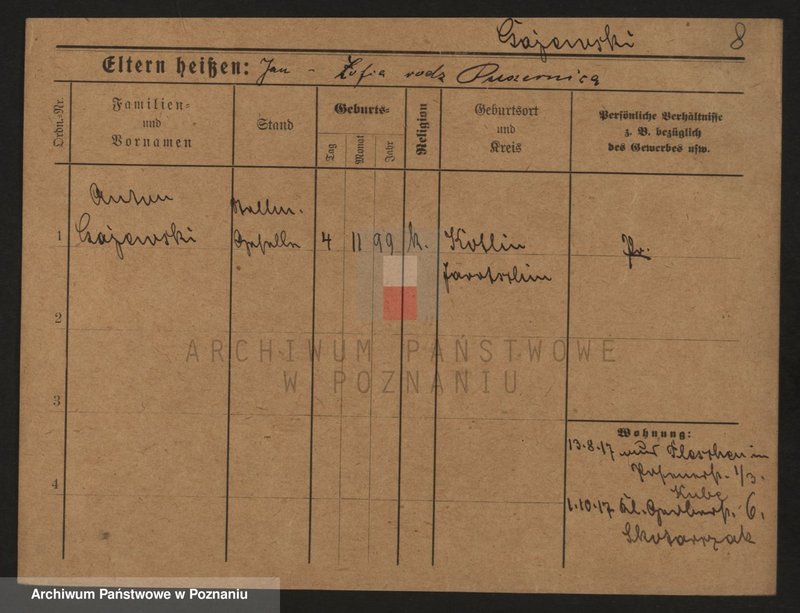 Gajewski 8
Eltern heißen: Jan - Zofia rodz
Ordn.-Nr.
Familien-
und
Vornamen
Stand
Geburts-
Tag
Monat
Jahr
Religion
Geburtsort
und
Kreis
Persönliche Verhältnisse
z. B. bezüglich
des Gewerbes usw.
Anton
1 Gajewski
Geselle 4 11 99 k. Kotlin Pr.
Jarotschin
2
3
4
Wohnung:
13.8.17 aus Pleschen in
Posenerst. 1/3.
Kube
1.10.17. Kl. Gerberst. 6.
Skotarczak
ARCHIWUM PAŃSTWOWE
W POZNANIU
Archiwum Państwowe w Poznaniu